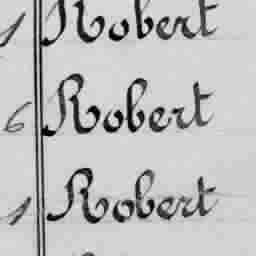 1 Robert
6 Robert
1 Robert